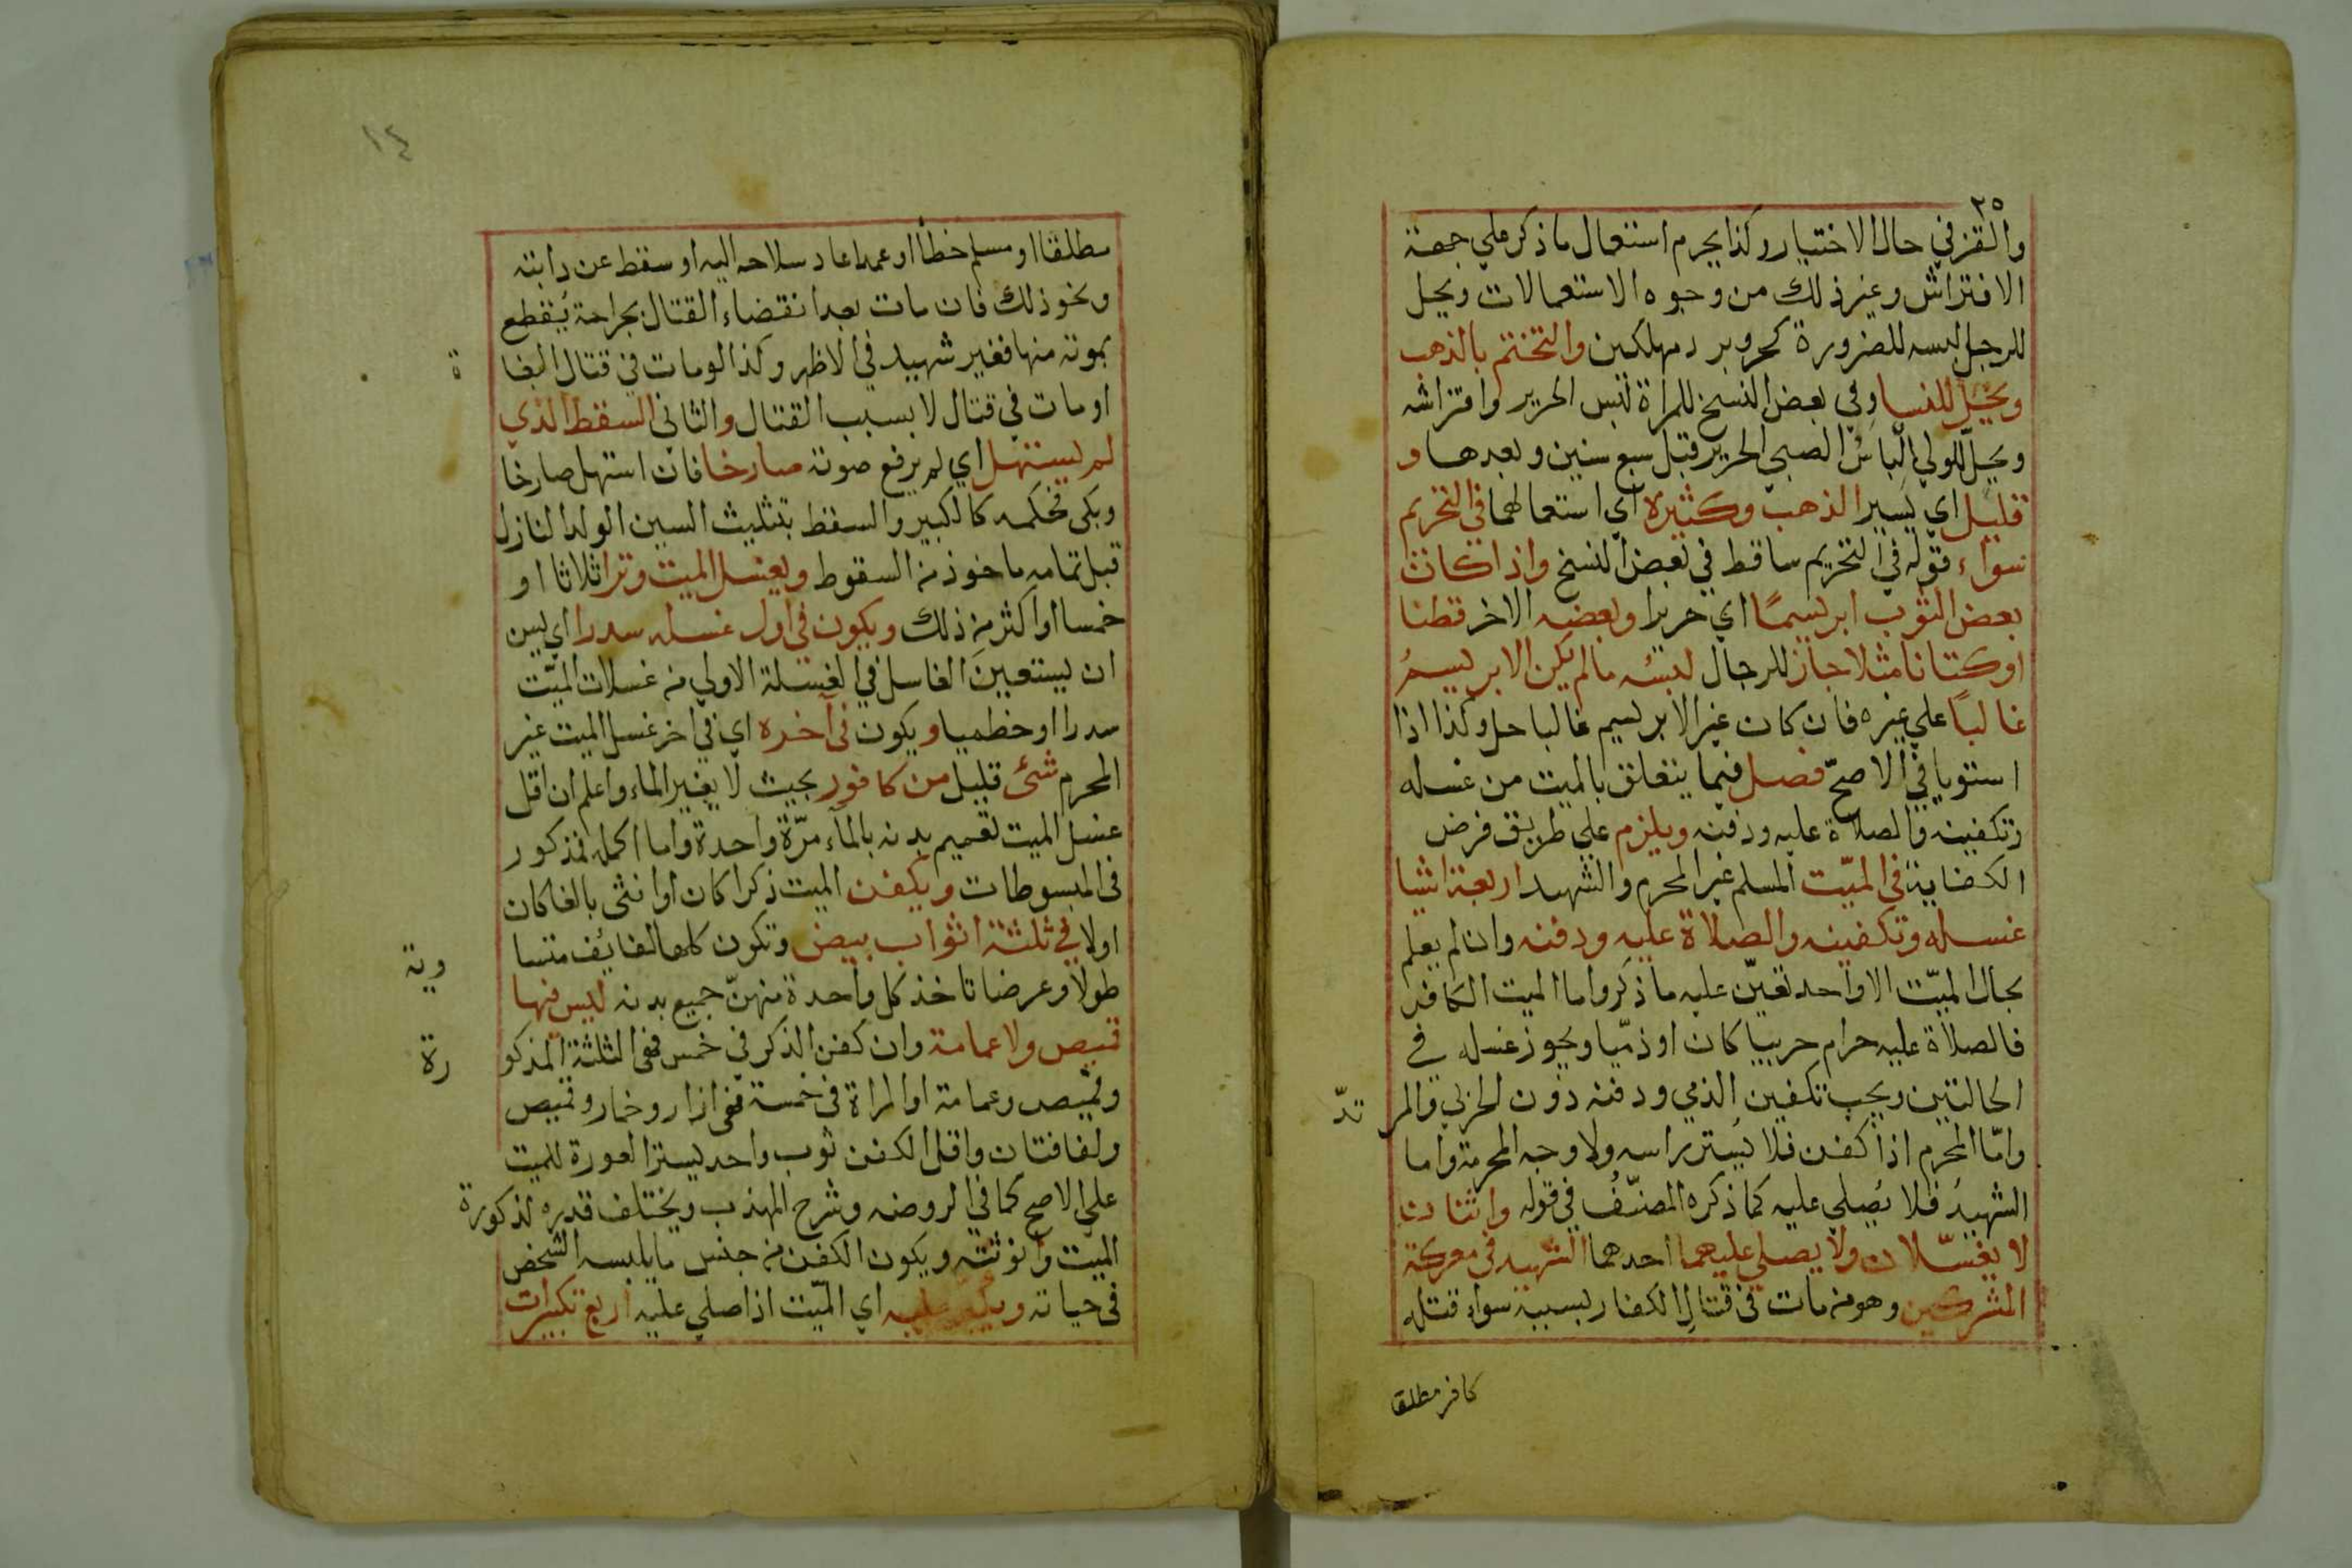 ٢٥
والقز في حال الاختيار وكذا يحرم استعمال ما ذكر علي جهة
الافتراش وغير ذلك من وجوه الاستعمالات ويحل
للرجل لبسه للضرورة كحر وبرد مهلكين والتختم بالذهب
ويحل للنسا وفي بعض النسخ للمراة لبس الحرير وافتراشه
ويحل للولي الباس الصبي الحرير قبل سبع سنين وبعدها و
قليل اي يسير الذهب وكثيره اي استعمالهما في التحريم
سواء قوله في التحريم ساقط في بعض النسخ واذا كان
بعض الثوب ابريسمًا اي حريرا وبعضه الاخر قطنا
او كتانا مثلا جاز للرجال لبسه ما لم يكن الابريسمُ
غالبًا علي غيره فان كان غير الابريسم غالبا حل وكذا اذا
استويا في الاصحّ فصل فيما يتعلق بالميت من غسله
وتكفينه والصلاة عليه ودفنه ويلزم علي طريق فرض
الكفاية في الميّت المسلم غير المحرم والشهيد اربعة اشيا
غسله وتكفينه والصلاة عليه ودفنه وان لم يعلم
بحال الميّت الا واحد تعيّن عليه ما ذكر واما الميت الكافر
فالصلاة عليه حرام حربيا كان او ذمّيا ويجوز غسله في
الحالتين ويجب تكفين الذمي ودفنه دون الحربي والمرتدّ
وامّا المحرم اذا كفن فلا يستر راسه ولا وجه المحرمة واما
الشهيدُ فلا يُصلي عليه كما ذكره المصنّفُ في قوله واثنان
لا يغسّلان ولا يصلي عليهما احدهما الشهيد في معركة
المشركين وهو من مات في قتال الكفار بسببه سواء قتله
كافر مطلقا
١٤
مطلقا او مسلم خطأ او عمدا عاد سلاحه اليه او سقط عن دابته
ونحو ذلك فان مات بعد انقضاء القتال بجراحة يُقطع
بموته منها فغير شهيد في الاظهر وكذا لو مات في قتال البغاة
او مات في قتال لا بسبب القتال والثاني السقط الذي
لم يستهل اي لم يرفع صوته صارخا فان استهل صارخا
وبكى فحكمه كالكبير والسقط بتثليث السين الولد النازل
قبل تمامه ماخوذ من السقوط ويغسل الميت وترا ثلاثا او
خمسا او اكثر من ذلك ويكون في اول غسله سدرا اي يسن
ان يستعين الغاسل في الغسلة الاولي من غسلات الميّت
سدرا او خطميا ويكون في آخره اي في اخر غسل الميت غير
المحرم شئ قليل من كافور بحيث لا يغير الماء واعلم ان اقل
غسل الميت تعميم بدنه بالماء مرّة واحدة واما اكمله فمذكور
في المبسوطات ويكفن الميت ذكرا كان او انثى بالغا كان
اولا في ثلثة اثواب بيض وتكون كلها لفائف متساوية
طولا وعرضا تاخذ كل واحدة منهنّ جميع بدنه ليس فيها
قميص ولا عمامة وان كفن الذكر في خمس ففي الثلثة المذكورة
وقميص وعمامة او المراة في خمسة ففي ازار وخمار وقميص
ولفافتان واقل الكفن ثوب واحد يستر العورة للميت
علي الاصح كما في الروضه وشرح المهذب ويختلف قدره لذكورة
الميت وانوثته ويكون الكفن من جنس ما يلبسه الشخص
في حياته ويكبر عليه اي الميّت اذا صلي عليه اربع تكبيرات